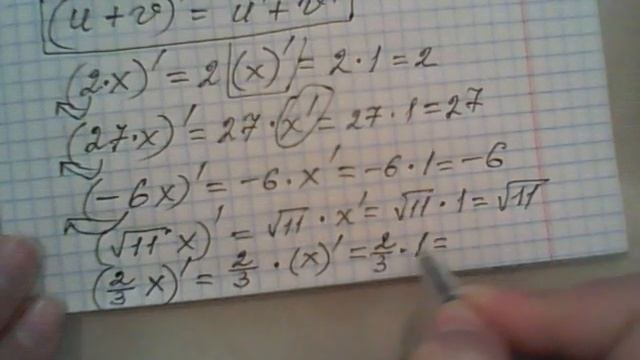 (u + v)' = u' + v'
(2·x)' = 2(x)' = 2·1 = 2
(27·x)' = 27·x' = 27·1 = 27
(-6x)' = -6·x' = -6·1 = -6
(√11 x)' = √11·x' = √11·1 = √11
(2/3 x)' = 2/3·(x)' = 2/3·1 =